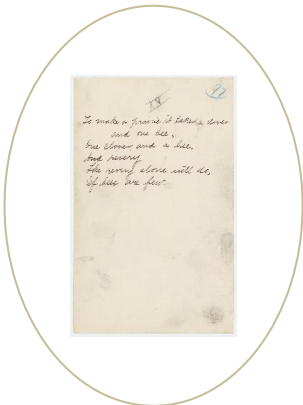 IV
To make a prairie it takes a clover
and one bee,
One clover and a bee,
And revery.
The revery alone will do,
If bees are few.